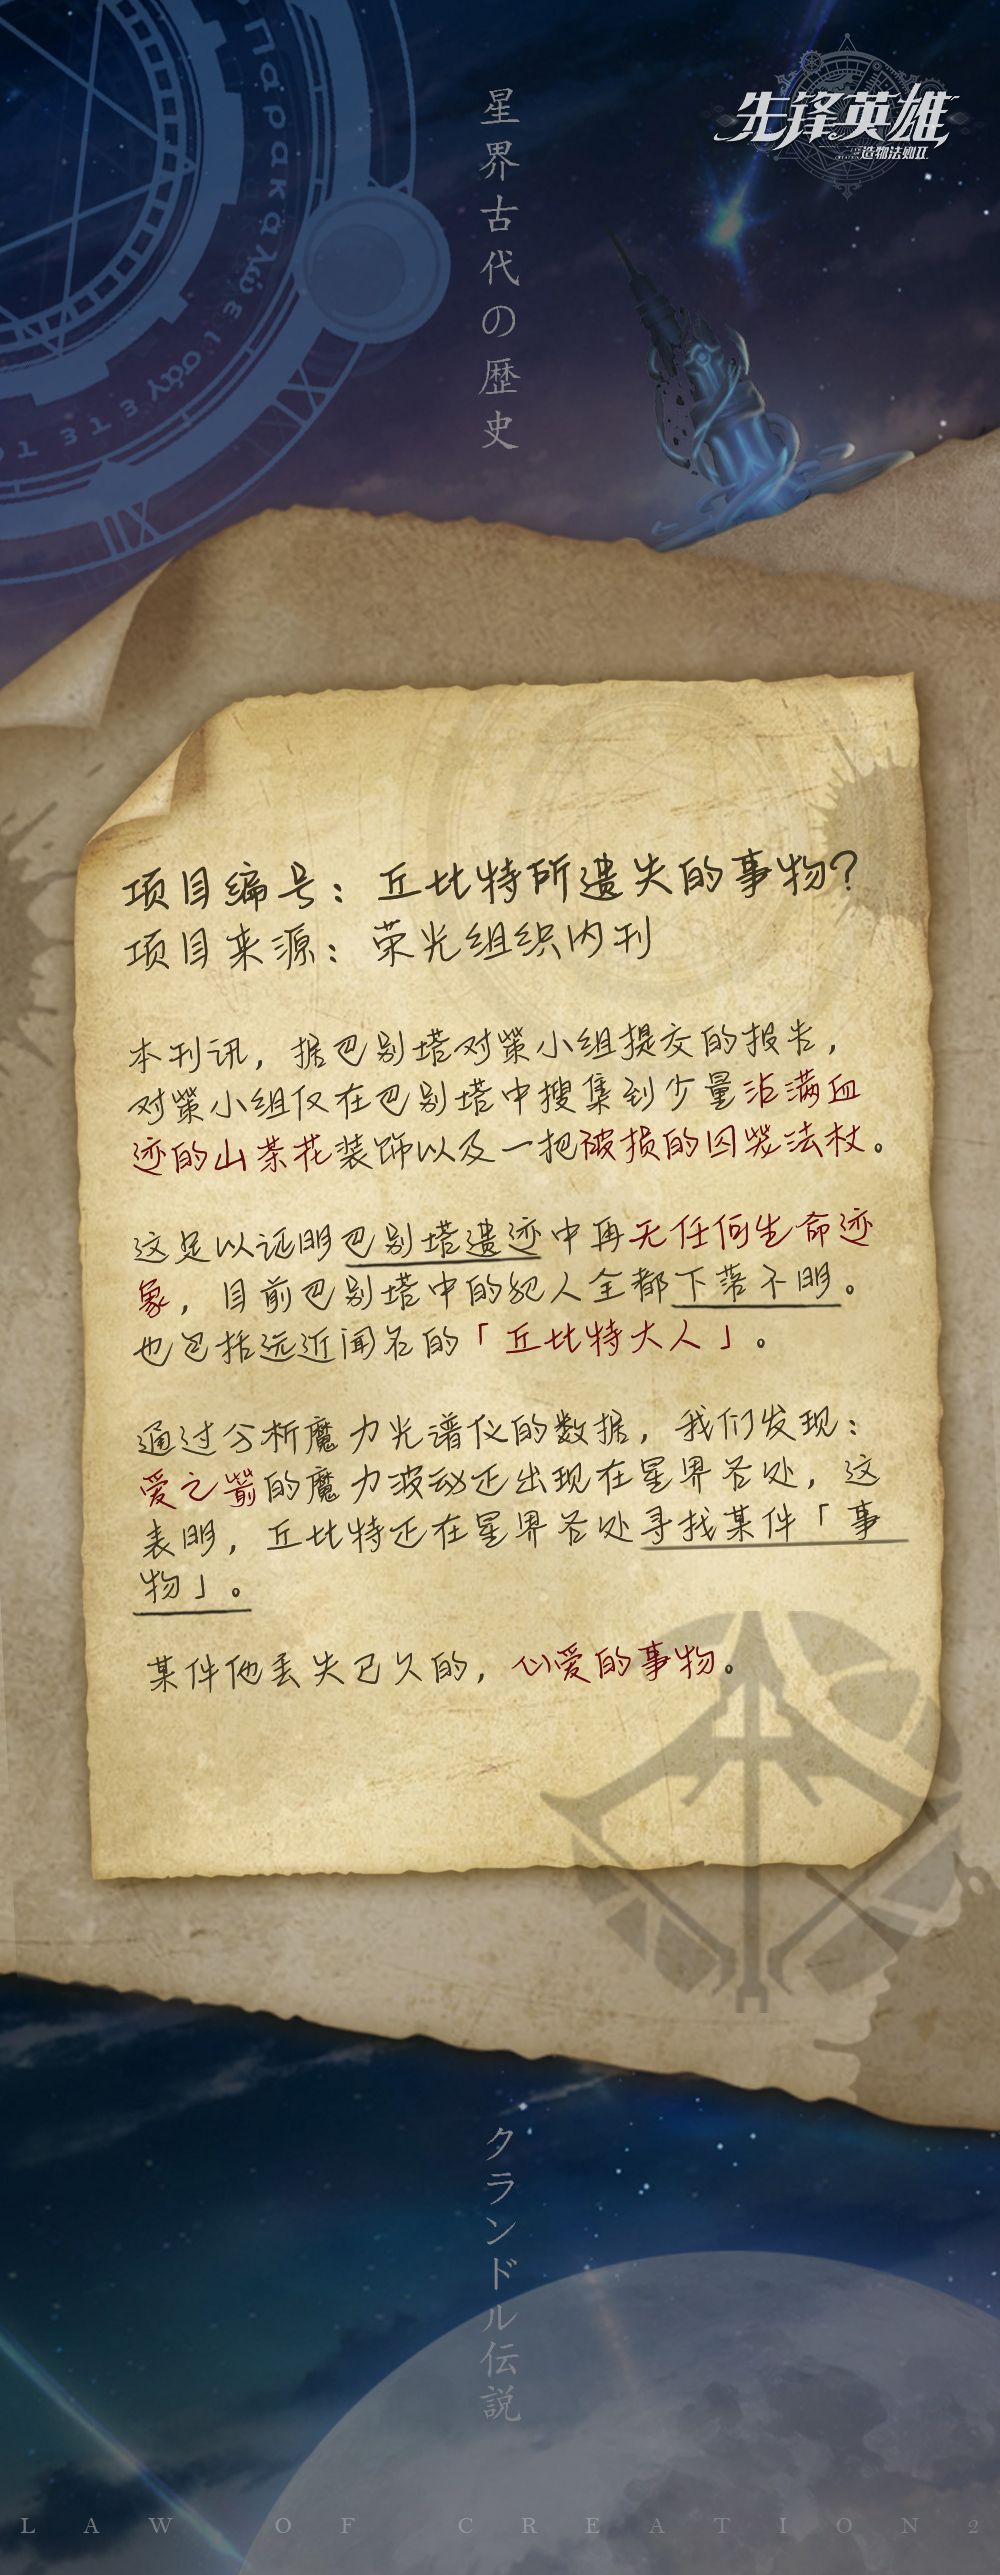 先锋英雄
造物法则II
星界古代の歴史
项目编号：丘比特所遗失的事物？
项目来源：荣光组织内刊
本刊讯，据巴别塔对策小组提交的报告，
对策小组仅在巴别塔中搜集到少量沾满血
迹的山茶花装饰以及一把破损的囚笼法杖。
这足以证明巴别塔遗迹中再无任何生命迹
象，目前巴别塔中的犯人全都下落不明。
也包括远近闻名的「丘比特大人」。
通过分析魔力光谱仪的数据，我们发现：
爱之箭的魔力波动正出现在星界各处，这
表明，丘比特正在星界各处寻找某件「事
物」。
某件他丢失已久的，心爱的事物。
クランドル伝説
LAW OF CREATION2